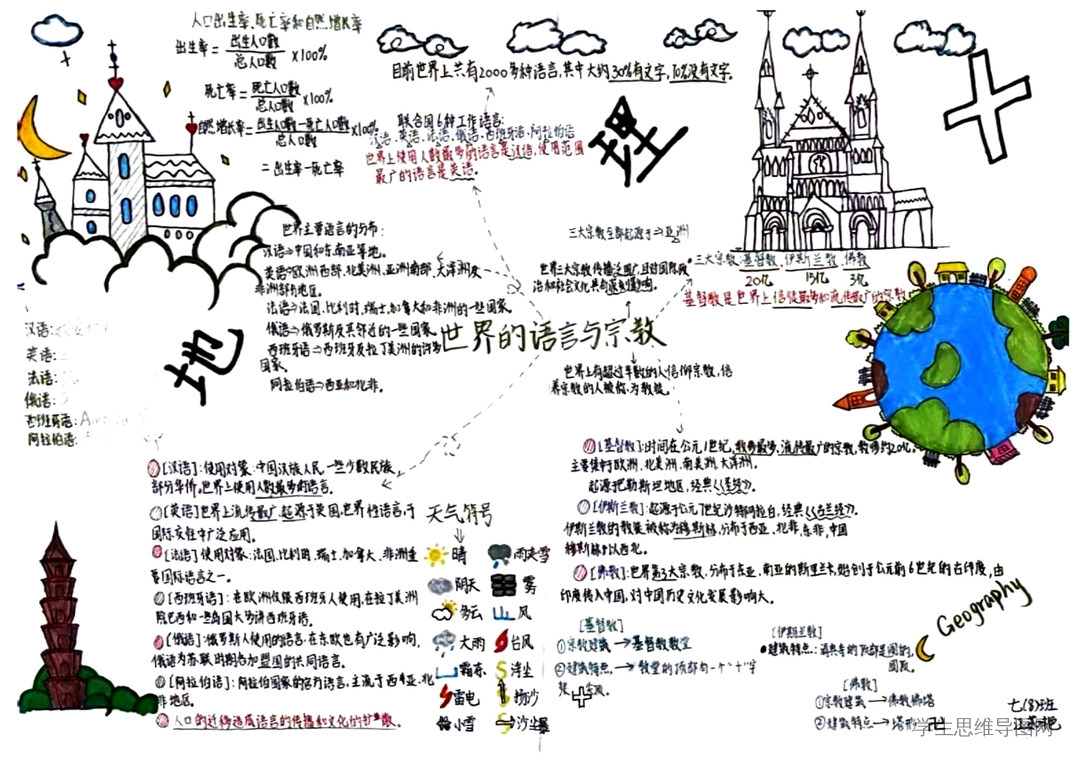 人口出生率、死亡率和自然增长率
出生率=出生人口数/总人口数×100%
死亡率=死亡人口数/总人口数×100%
自然增长率=出生人口数-死亡人口数/总人口数×100%
=出生率-死亡率
目前世界上共有2000多种语言,其中大约30%有文字,70%没有文字。
联合国6种工作语言:
汉语、英语、法语、俄语、西班牙语、阿拉伯语
世界上使用人数最多的语言是汉语,使用范围
最广的语言是英语。
地
理
世界主要语言的分布:
汉语→中国和东南亚等地。
英语→欧洲西部、北美洲、亚洲南部、大洋洲及
非洲部分地区。
法语→法国、比利时、瑞士、加拿大和非洲的一些国家
俄语→俄罗斯及其邻近的一些国家
西班牙语→西班牙及拉丁美洲的许多
国家。
阿拉伯语→西亚和北非。
世界的语言与宗教
三大宗教全部起源于→亚洲
世界三大宗教传播范围广,且对国际政
治和社会文化具有深刻影响。
三大宗教:基督教、伊斯兰教、佛教
20亿 15亿 3亿
基督教是世界上信徒最多和流传最广的宗教
世界上有超过半数的人信仰宗教,信
养宗教的人被称为教徒。
汉语:
英语:
法语:
俄语:
西班牙语:
阿拉伯语:
[汉语]:使用对象:中国汉族人民,一些少数民族
部分华侨。世界上使用人数最多的语言。
[英语]世界上流传最广,起源于英国,世界性语言,于
国际交往中广泛应用。
[法语]使用对象:法国、比利时、瑞士、加拿大、非洲重
要国际语言之一。
[西班牙语]:在欧洲仅限西班牙人使用,在拉丁美洲
除巴西和一些岛国大多讲西班牙语。
[俄语]:俄罗斯人使用的语言,在东欧也有广泛影响,
俄语为苏联时期各加盟国的共同语言。
[阿拉伯语]:阿拉伯国家的官方语言,主流于西亚、北
非地区。
人口的迁移造成语言的传播和文化的扩散。
天气符号
晴 雨夹雪
阴天 雾
多云 风
大雨 台风
霜冻 浮尘
雷电 扬沙
小雪 沙尘暴
[基督教]:时间在公元1世纪,教徒最多、流传最广的宗教,教徒约20亿,
主要集中于欧洲、北美洲、南美洲、大洋洲。
起源巴勒斯坦地区,经典《圣经》。
[伊斯兰教]:起源于公元7世纪沙特阿拉伯,经典《古兰经》。
伊斯兰教的教徒被称为穆斯林,分布于西亚、北非、东非,中国
穆斯林多以西北。
[佛教]:世界第3大宗教,分布于东亚、南亚的斯里兰卡,始创于公元前6世纪的古印度,由
印度传入中国,对中国历史文化发展影响大。
[基督教]
①宗教建筑→基督教教堂
②建筑特点→教堂的顶部有一个"十"字
[伊斯兰教]
建筑特点:清真寺的顶部是圆的,
[佛教]
①宗教建筑→佛教佛塔
②建筑特点→塔形 卍
Geography
七(8)班
学生思维导图网